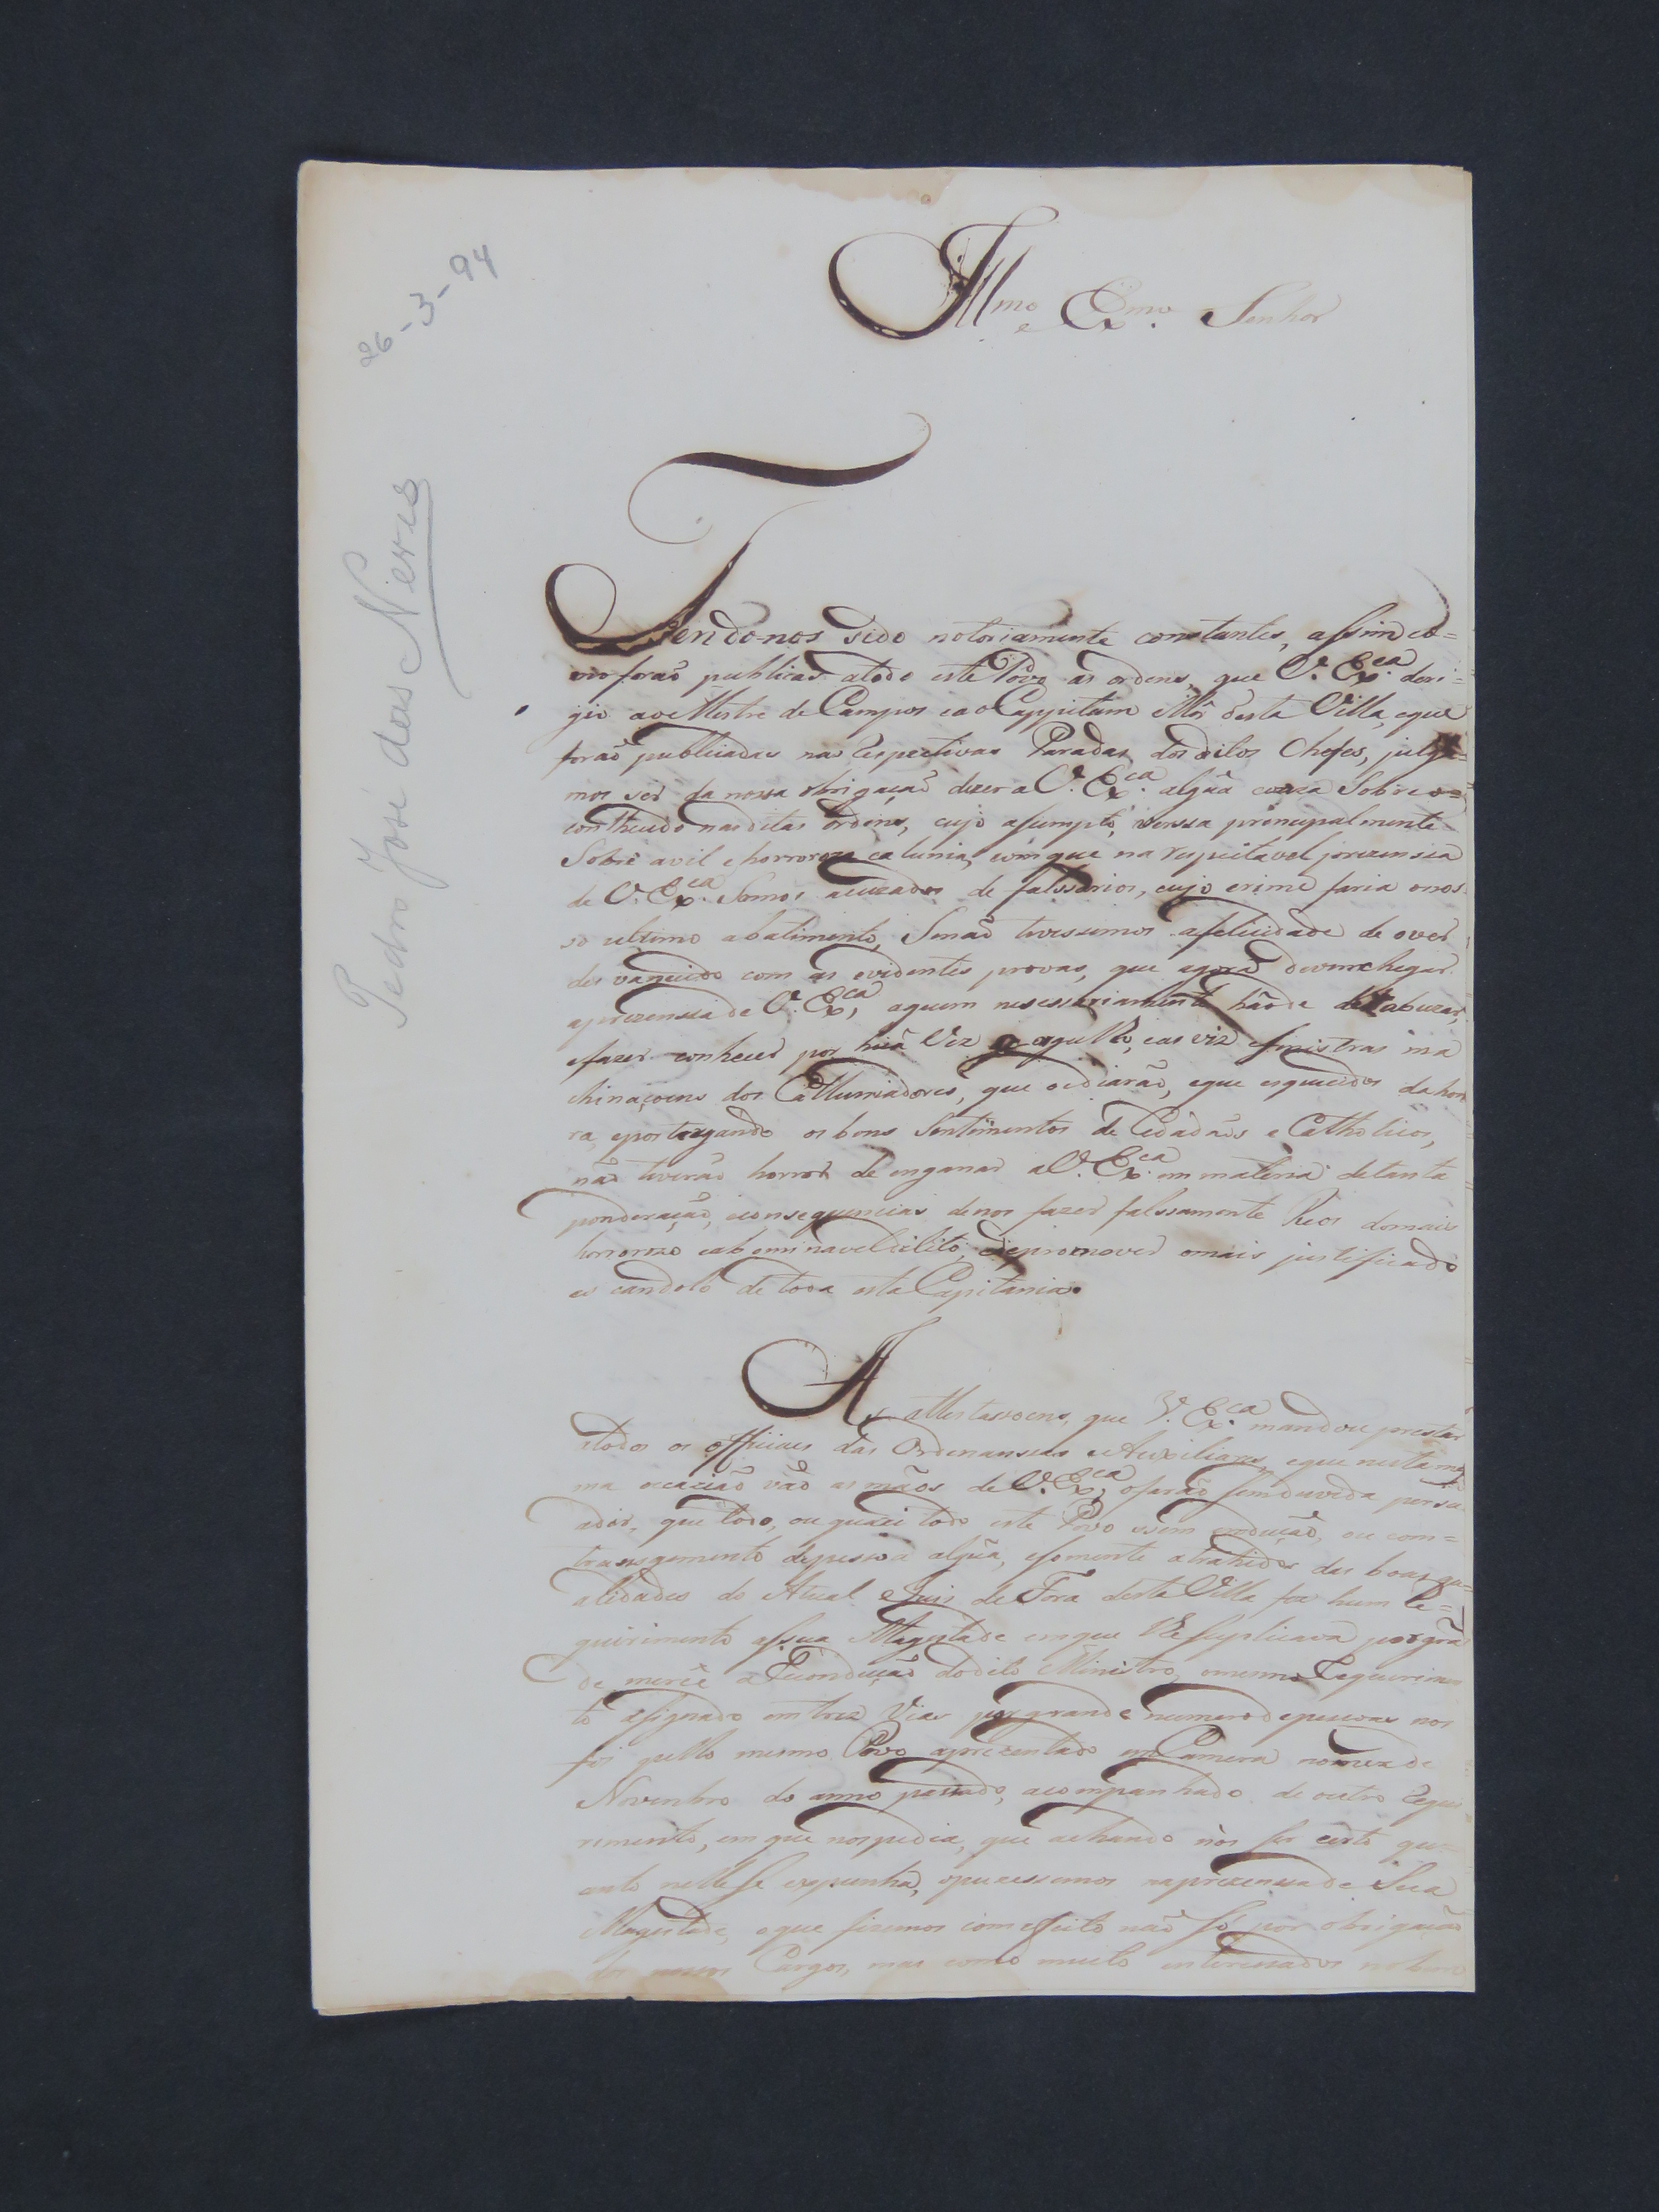 26-3-94
Pedro José das Neves
Illmo e Exmo. Senhor
Tendo-nos sido notoriamente constantes, assim co=
mo forão publicas atodo este Povo as ordens, que V. Exca. deri-
gio ao Mestre de Campos e ao Cappitam Mór desta Villa, eque
forão publicadas nas Respectivas Paradas dos ditos Chefes, julga=
mos ser da nossa obrigação dizer a V. Exca. algũa couza Sobre o=
contheudo nas ditas ordens, cujo asumpto, verssa principalmente
Sobre avil ehorroroza calunia, com que na respeitavel prezenssa
de V. Exca. Somos acuzados de falssarios, cujo crime faria onos-
so ultimo abatimento, Senão tivessemos afelicidade de over
desvanecido com as evidentes provas, que agora devem chegar
aprezenssa de V. Exca, aquem nesessariamente hão de dezabuzar,
efazer conhecer por hũa vez eas vis esinistras ma
chinaçoens dos Callumniadores, que ordiarão, eque esquecidos da hon
ra, epostergando os bons Sentimentos de Cidadãos e Catholicos,
não tiverão horror de enganar aV. Exca. em materia detanta
ponderação, econsequencias denos fazer falssamente Reos domais
horrorozo eabominavel dilito, edepromover omais justificado
escandolo de toda esta Capitania.
As attestassoens, que V. Exca. mandou prestar
atodos os officiaes das Ordenanssas e Auxiliares, eque nesta mes
ma ocacião vão as mãos de V. Exca, ofarão sem duvida persu
adir, que todo, ou quazi todo este Povo ssem indução, ou cons=
trangemento depessoa algũa, esomente atrahidos das boas qu=
alidades do Atual Juis de Fora desta Villa fez hum Re=
querimento aSua Magestade emque lhe Suplicava por gran
de mercê aRecondução dodito Ministro, omesmo Requerimen
to asignado em trez Vias por grande numero depessoas nos
foi pello mesmo Povo aprezentado em Camera nomez de
Novenbro do anno passado, acompanhado de outro Reque
rimento, em que nospedia, que achando nós ser certo qu-
anto nelle se expunha, opuzessemos naprezenssa de Sua
Magestade, oque fizemos com effeito não só por obrigação
dos nossos Cargos, mas como muito interessados no bem